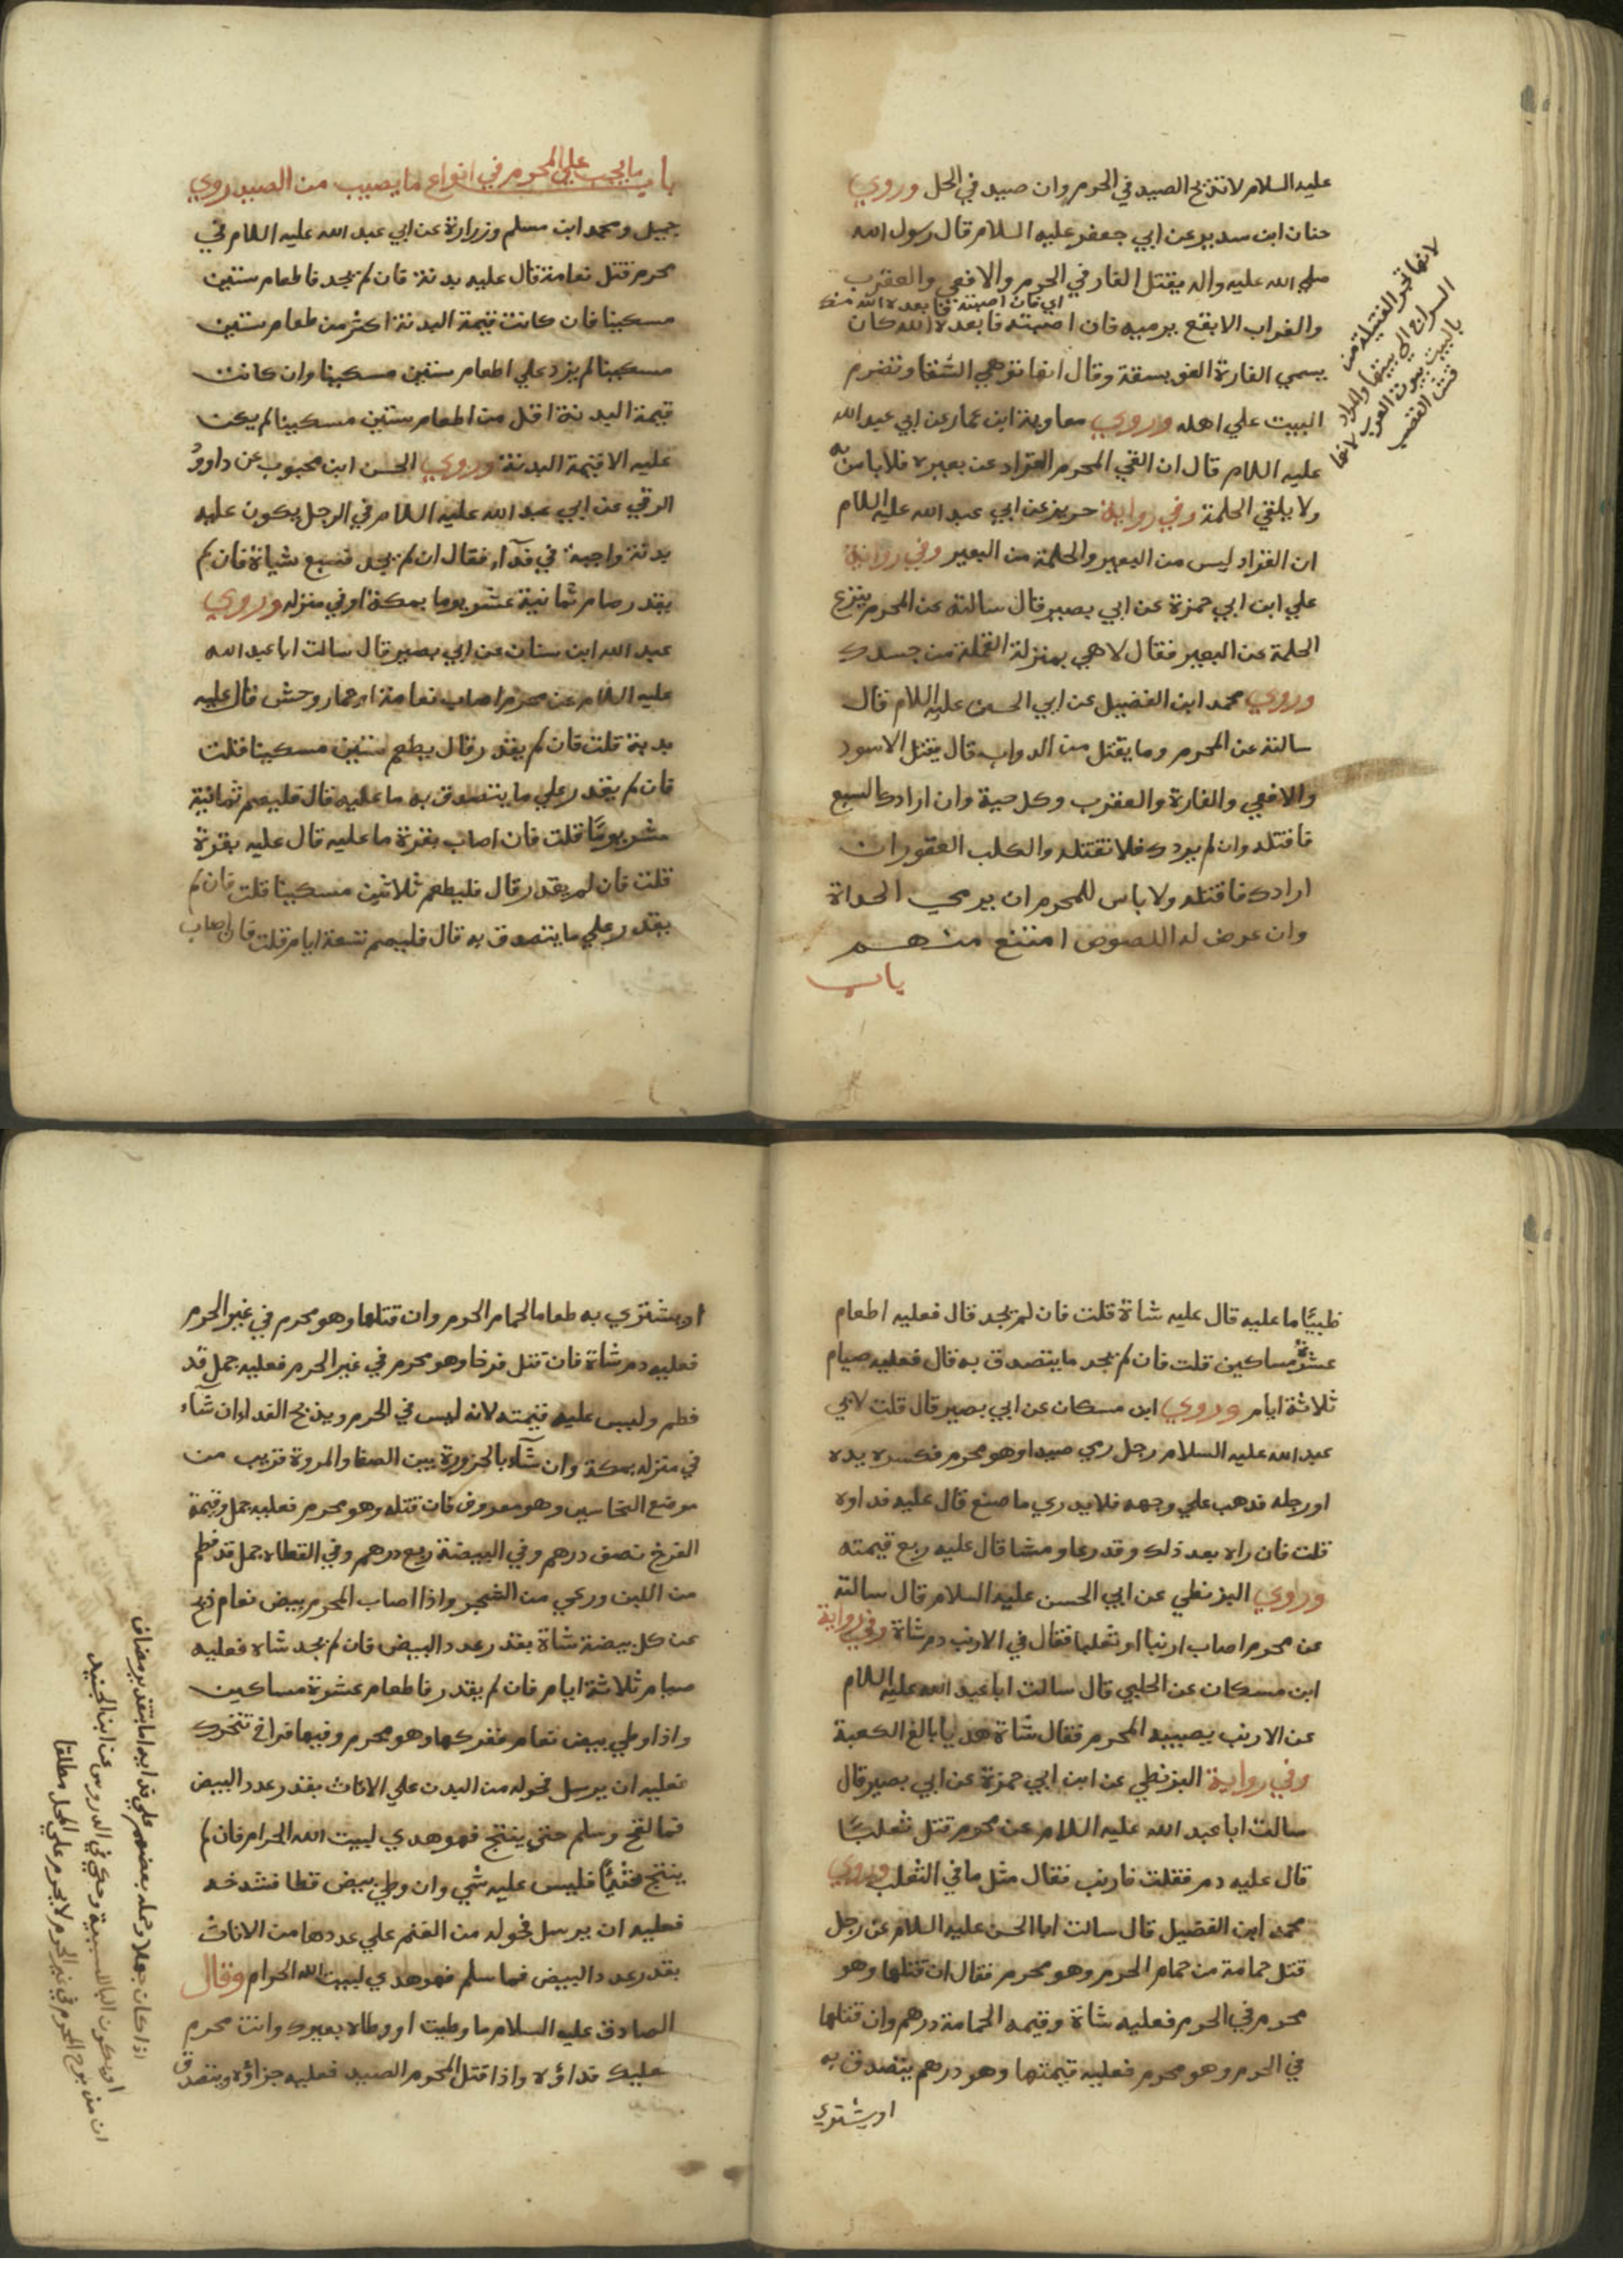 عليه السلام لا تذبح الصيد في الحرم وان صيد في الحل وروي
حنان ابن سدير عن ابي جعفر عليه السلام قال رسول الله
صلي الله عليه واله بقتل الفار في الحرم والافعي والعقرب
اي فان اصبته فابعده الله منك
والغراب الابقع يرميه فان اصبته فابعده الله كان
يسمي الفارة الفويسقة وقال انها توهي السقا وتضرم
البيت علي اهله وروي معاوية ابن عمار عن ابي عبد الله
عليه السلام قال ان القي المحرم القراد عن بعيره فلا باس به
ولا يلقي الحلمة وفي رواية حريز عن ابي عبد الله عليه السلام
ان القراد ليس من البعير والحلمة من البعير وفي رواية
علي ابن ابي حمزة عن ابي بصير قال سالته عن المحرم ينزع
الحلمة عن البعير فقال لا هي بمنزلة القملة من جسدك
وروي محمد ابن الفضيل عن ابي الحسن عليه السلام قال
سالته عن المحرم وما يقتل من الدواب قال يقتل الاسود
والافعي والفارة والعقرب وكل حية وان ارادك السبع
فاقتله وان لم يردك فلا تقتله والكلب العقور ان
ارادك فاقتله ولا باس للمحرم ان يرمي الحداة
وان عرض له اللصوص امتنع منهم
باب
لانها تجر الفتيلة من
السراج الي بيتها والمراد
بالبيت بيوت العرب لانها
من القصب
باب ما يجب علي المحرم في انواع ما يصيب من الصيد روي
جميل ومحمد ابن مسلم وزرارة عن ابي عبد الله عليه السلام في
محرم قتل نعامة قال عليه بدنة فان لم يجد فاطعام ستين
مسكينا فان كانت قيمة البدنة اكثر من طعام ستين
مسكينا لم يزد علي اطعام ستين مسكينا وان كانت
قيمة البدنة اقل من اطعام ستين مسكينا لم يكن
عليه الا قيمة البدنة وروي الحسن ابن محبوب عن داوود
الرقي عن ابي عبد الله عليه السلام في الرجل يكون عليه
بدنة واجبة في فدآء فقال ان لم يجد فسبع شياة فان لم
يقدر صام ثمانية عشر يوما بمكة او في منزله وروي
عبد الله ابن سنان عن ابي بصير قال سالت ابا عبد الله
عليه السلام عن محرم اصاب نعامة او حمار وحش قال عليه
بدنة قلت فان لم يقدر قال يطعم ستين مسكينا قلت
فان لم يقدر علي ما يتصدق به ما عليه قال فليصم ثمانية
عشر يوما قلت فان اصاب بقرة ما عليه قال عليه بقرة
قلت فان لم يقدر قال فليطعم ثلاثين مسكينا قلت فان لم
يقدر علي ما يتصدق به قال فليصم تسعة ايام قلت فان اصاب
ظبيًا ما عليه قال عليه شاة قلت فان لم يجد قال فعليه اطعام
عشرة مساكين قلت فان لم يجد ما يتصدق به قال فعليه صيام
ثلاثة ايام وروي ابن مسكان عن ابي بصير قال قلت لابي
عبد الله عليه السلام رجل رمي صيدا وهو محرم فكسر يده
او رجله فذهب علي وجهه فلا يدري ما صنع قال عليه فداوه
قلت فان راه بعد ذلك وقد رعا ومشا قال عليه ربع قيمته
وروي البزنطي عن ابي الحسن عليه السلام قال سالته
عن محرم اصاب ارنبا او ثعلبا فقال في الارنب دم شاة وفي رواية
ابن مسكان عن الحلبي قال سالت ابا عبد الله عليه السلام
عن الارنب يصيبه المحرم فقال شاة هديا بالغ الكعبة
وفي رواية البزنطي عن ابن ابي حمزة عن ابي بصير قال
سالت ابا عبد الله عليه السلام عن محرم قتل ثعلبًا
قال عليه دم فقلت فارنب فقال مثل ما في الثعلب وروي
محمد ابن الفضيل قال سالت ابا الحسن عليه السلام عن رجل
قتل حمامة من حمام الحرم وهو محرم فقال ان قتلها وهو
محرم في الحرم فعليه شاة وقيمه الحمامة درهم وان قتلها
في الحرم وهو محرم فعليه قيمتها وهو درهم يتصدق به
او يشتري
او يشتري به طعاما لحمام الحرم وان قتلها وهو محرم في غير الحرم
فعليه دم شاة فان قتل فرخا وهو محرم في غير الحرم فعليه حمل قد
فطم وليس عليه قيمته لانه ليس في الحرم ويذبح الفداء ان شآء
في منزله بمكة وان شآء بالحزورة بين الصفا والمروة قريب من
موضع النخاسين وهو معروف فان قتله وهو محرم فعليه حمل وقيمة
الفرخ نصف درهم وفي البيضة ربع درهم وفي القطاه حمل قد فطم
من اللبن ورعي من الشجر واذا اصاب المحرم بيض نعام ذبح
عن كل بيضة شاة بقدر عدد البيض فان لم يجد شاه فعليه
صيام ثلاثة ايام فان لم يقدر فاطعام عشرة مساكين
واذا وطي بيض نعام ففركها وهو محرم وفيها فراخ تتحرك
فعليه ان يرسل فحوله من البدن علي الاناث بقدر عدد البيض
فما لقح وسلم حتي ينتج فهو هدي لبيت الله الحرام فان لم
ينتج شيًا فليس عليه شي وان وطي بيض قطا فشدخه
فعليه ان يرسل فحوله من الغنم علي عددها من الاناث
بقدر عدد البيض فما سلم فهو هدي لبيت الله الحرام وقال
الصادق عليه السلام ما وطيت او وطاه بعيرك وانت محرم
عليك فداؤه واذا قتل المحرم الصيد فعليه جزاؤه ويتصدق